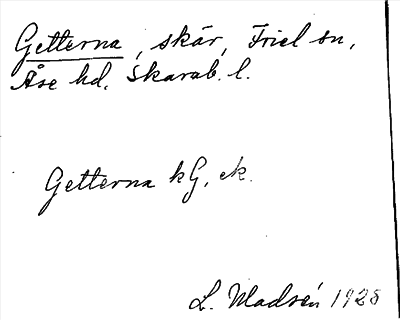 Getterna, skär, Friel sn,
Åse hd. Skarab. l.
Getterna kG, ek.
L. Madsén 1928